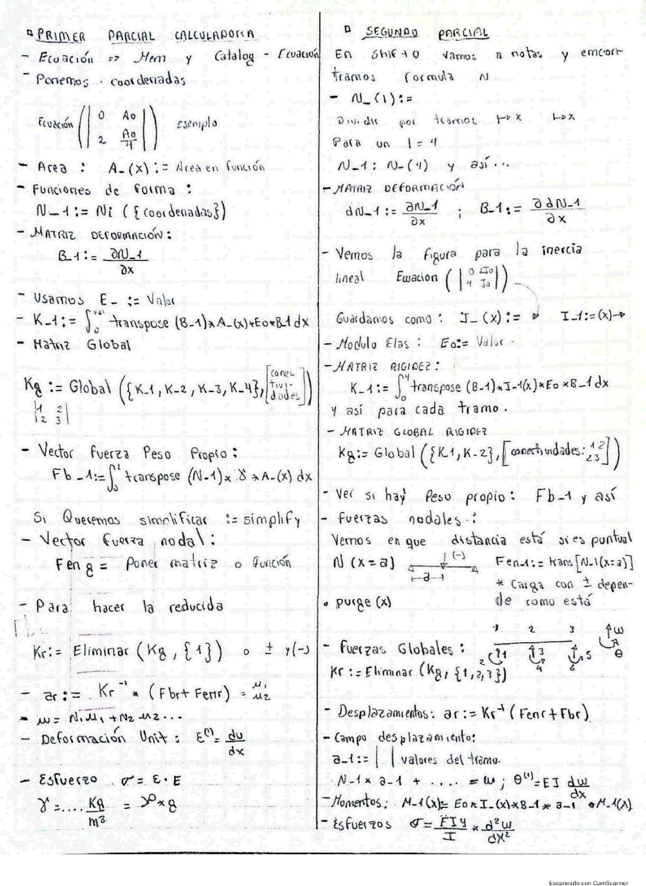 PRIMER PARCIAL CALCULADORA
- Ecuación => Mem y Catalog - Ecuación
- Ponemos coordenadas
Ecuación (| 0 A0 / 2 A0/4 |) ejemplo
- Area : A_(x) := Area en función
- Funciones de forma :
N_1 := Ni ({coordenadas})
- MATRIZ DEFORMACIÓN :
B_1 := ∂N_1/∂x
- Usamos E_ := Valor
- K_1 := ∫ transpose (B_1) x A_(x) * Eo * B_1 dx
- Matriz Global
Kg := Global ({K_1, K_2, K_3, K_4}, [conectividades])
|1 2|
|2 3|
- Vector Fuerza Peso Propio :
Fb_1 := ∫ transpose (N_1) * γ * A_(x) dx
Si Queremos simplificar := simplify
- Vector fuerza nodal :
Feng = Poner matriz o función
- Para hacer la reducida
Kr := Eliminar (Kg, {1}) o ± y(-)
- ar := Kr⁻¹ * (Fbr + Fenr) = μ1 μ2
- μ = N1μ1 + N2μ2 ...
- Deformación Unit : ε⁽¹⁾ = du/dx
- Esfuerzo σ = ε · E
γ = .... Kg/m³ = γ⁰ * g
SEGUNDO PARCIAL
En Shift 0 vamos a notas y encon-
tramos formula N
- N_(1) :=
Dividir por tramos ↦x ↦x
Para un l = 4
N_1 : N_(4) y así...
- MATRIZ DEFORMACIÓN
dN_1 := ∂N_1/∂x ; B_1 := ∂dN_1/∂x
- Vemos la figura para la inercia
lineal Ecuacion (| 0 2I0 / 4 I0 |)
Guardamos como : I_(x) := I_1 := (x) →
- Modulo Elas : Eo := Valor
- MATRIZ RIGIDEZ :
K_1 := ∫₀⁴ transpose (B_1) * I_1(x) * Eo * B_1 dx
y así para cada tramo.
- MATRIZ GLOBAL RIGIDEZ
Kg := Global ({K_1, K_2}, [conectividades: 1 2 / 2 3])
- Ver si hay Peso propio : Fb_1 y así
- Fuerzas nodales :
Vemos en que distancia está si es puntual
N (x = a) |-a-| ↓(-) Fen_1 := trans [N_1(x=a)]
* Carga con ± depen-
de como está
• purge (x)
- Fuerzas Globales : 1 2 3 w θ
2 1 3 4 5 6
Kr := Eliminar (Kg, {1, 2, 3})
- Desplazamientos : ar := Kr⁻¹ (Fenr + Fbr)
- Campo desplazamiento :
a_1 := | | valores del tramo.
N_1 * a_1 + .... = w ; θ⁽¹⁾ = EI dw/dx
- Momentos : M_1(x) = Eo * I_(x) * B_1 * a_1
- Esfuerzos σ = EIy/I * d²w/dx²
Escaneado con CamScanner